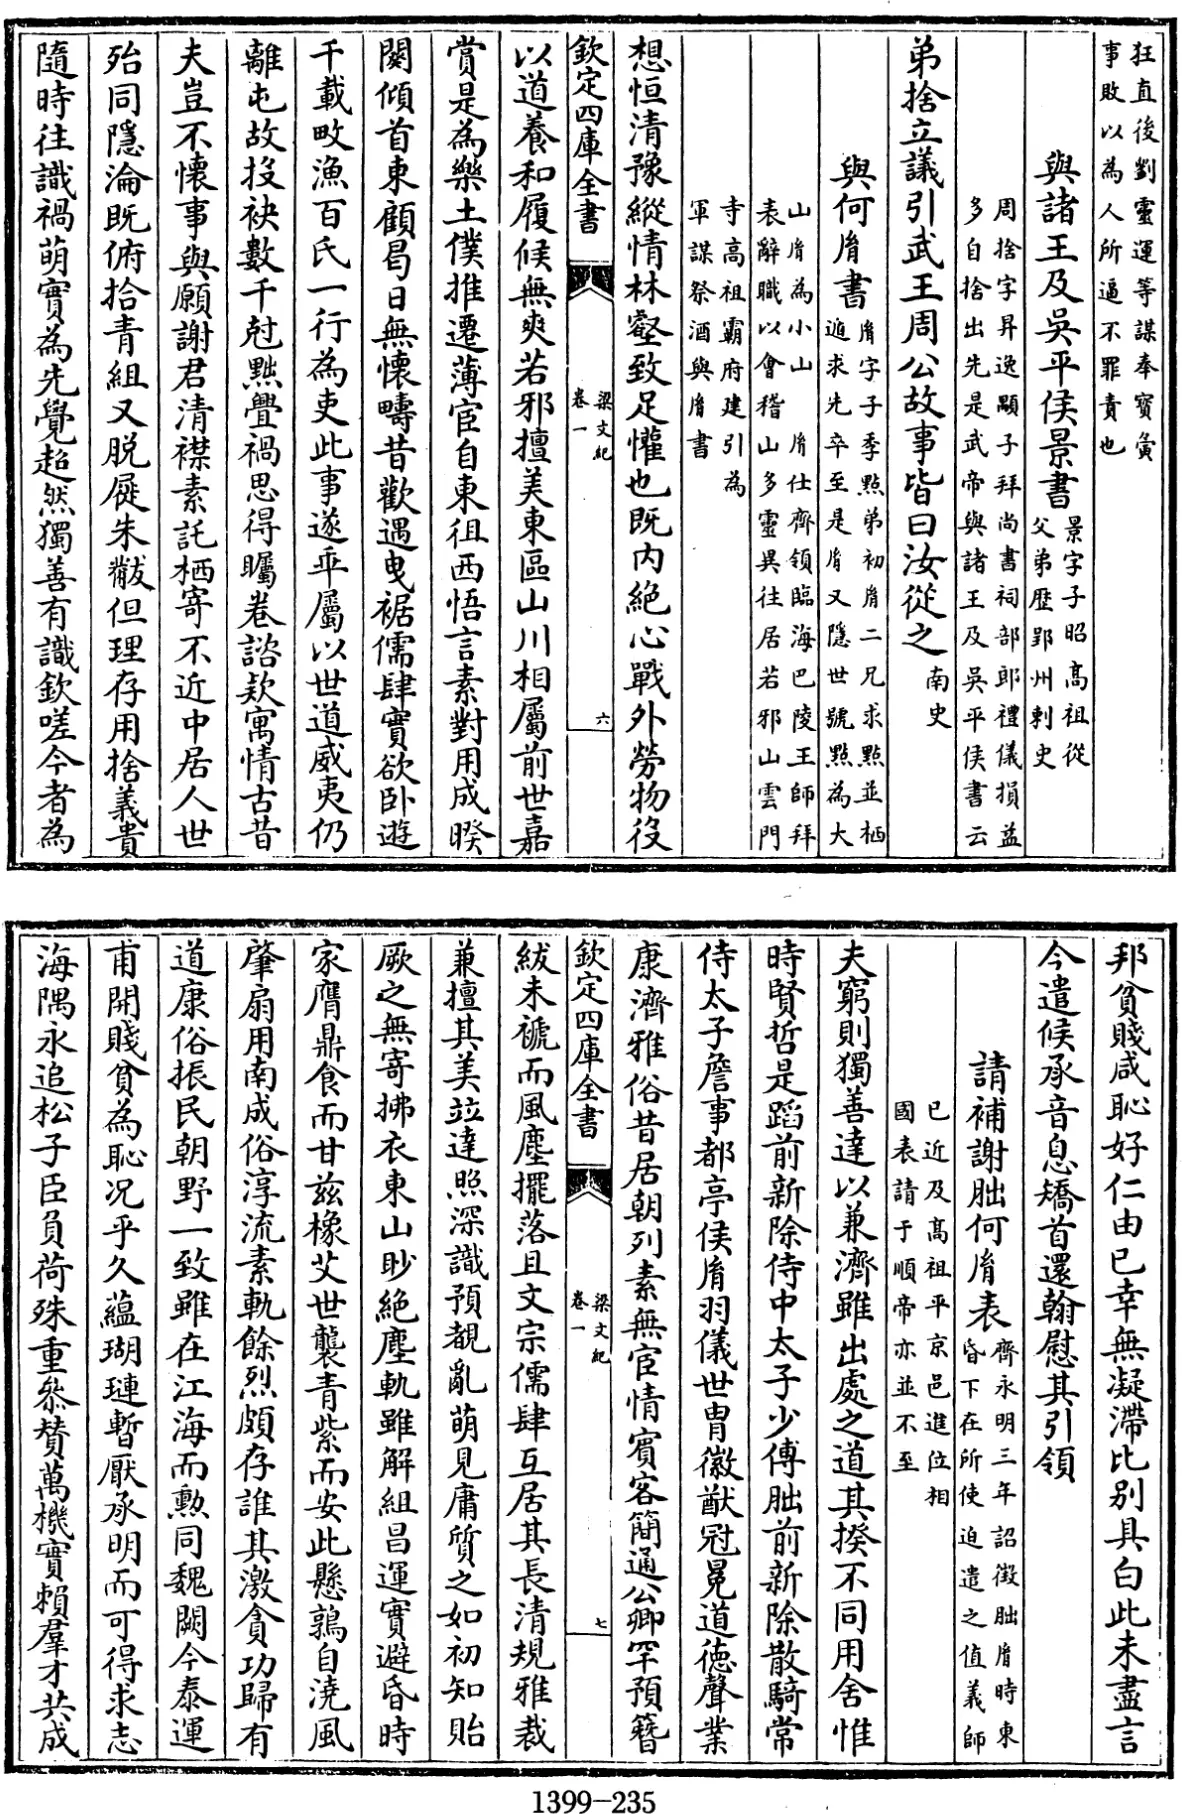 狂直後劉靈運等謀奉寶夤
事敗以為人所逼不罪責也
與諸王及吳平侯景書
景字子昭高祖從
父弟歷郢州刺史
周捨字昇逸顯子拜尚書祠部郎禮儀損益
多自捨出先是武帝與諸王及吳平侯書云
弟捨立議引武王周公故事皆曰汝從之
南史
與何胤書
胤字子季點弟初胤二兄求點並栖
遁求先卒至是胤又隱世號點為大
山胤為小山 胤仕齊領臨海巴陵王師拜
表辭職以會稽山多靈異往居若邪山雲門
寺高祖霸府建引為
軍謀祭酒與胤書
想恒清豫縱情林壑致足懽也既内絶心戰外勞物役
欽定四庫全書
梁文紀
卷一
六
以道養和履候無爽若邪擅美東區山川相屬前世嘉
賞是為樂土僕推遷薄宦自東徂西悟言素對用成暌
闋傾首東顧曷日無懷疇昔歡遇曵裾儒肆實欲卧遊
千載畋漁百氏一行為吏此事遂乖屬以世道威夷仍
離屯故投袂數千尅黜釁禍思得矚卷諮欵寓情古昔
夫豈不懷事與願謝君清襟素託栖寄不近中居人世
殆同隱淪既俯拾青組又脱屣朱黻但理存用捨義貴
隨時往識禍萌實為先覺超然獨善有識欽嗟今者為
邦貧賤咸恥好仁由已幸無凝滯比别具白此未盡言
今遣候承音息矯首還翰慰其引領
請補謝朏何胤表
齊永明三年詔徴朏胤時東
昏下在所使迫遣之值義師
已近及高祖平京邑進位相
國表請于順帝亦並不至
夫窮則獨善達以兼濟雖出處之道其揆不同用舍惟
時賢哲是蹈前新除侍中太子少傅朏前新除散騎常
侍太子詹事都亭侯胤羽儀世胄徽猷冠冕道徳聲業
康濟雅俗昔居朝列素無宦情賓客簡通公卿罕預簪
欽定四庫全書
梁文紀
卷一
七
紱未褫而風塵擺落且文宗儒肆互居其長清規雅裁
兼擅其美竝達照深識預覩亂萌見庸質之如初知貽
厥之無寄拂衣東山眇絶塵軌雖解組昌運實避昏時
家膺鼎食而甘兹橡艾世襲青紫而安此懸鶉自澆風
肇扇用南成俗淳流素軌餘烈頗存誰其激貪功歸有
道康俗振民朝野一致雖在江海而勲同魏闕今泰運
甫開賤貧為恥況乎久藴瑚璉暫厭承明而可得求志
海隅永追松子臣負荷殊重叅賛萬機實賴羣才共成
1399-235